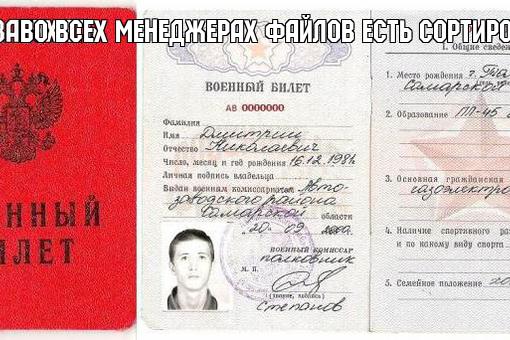 ВО ВСЕХ МЕНЕДЖЕРАХ ФАЙЛОВ ЕСТЬ СОРТИРО
ЕННЫЙ
ИЛЕТ
ВОЕННЫЙ БИЛЕТ
АВ 0000000
Фамилия
Имя Дмитрий
Отчество Николаевич
Число, месяц и год рождения 16.12.198
Личная подпись владельца
Выдан военным комиссариатом Авто-
заводского района
Самарской области
20 09
ВОЕННЫЙ КОМИССАР
полковник
М. П.
(звание, подпись)
Степанов
I. Общие сведен
1. Место рождения г.
Самарской
2. Образование ПЛ-45
3. Основная гражданская
газоэлектро
4. Наличие спортивного раз
и по какому виду спорта
5. Семейное положение хо